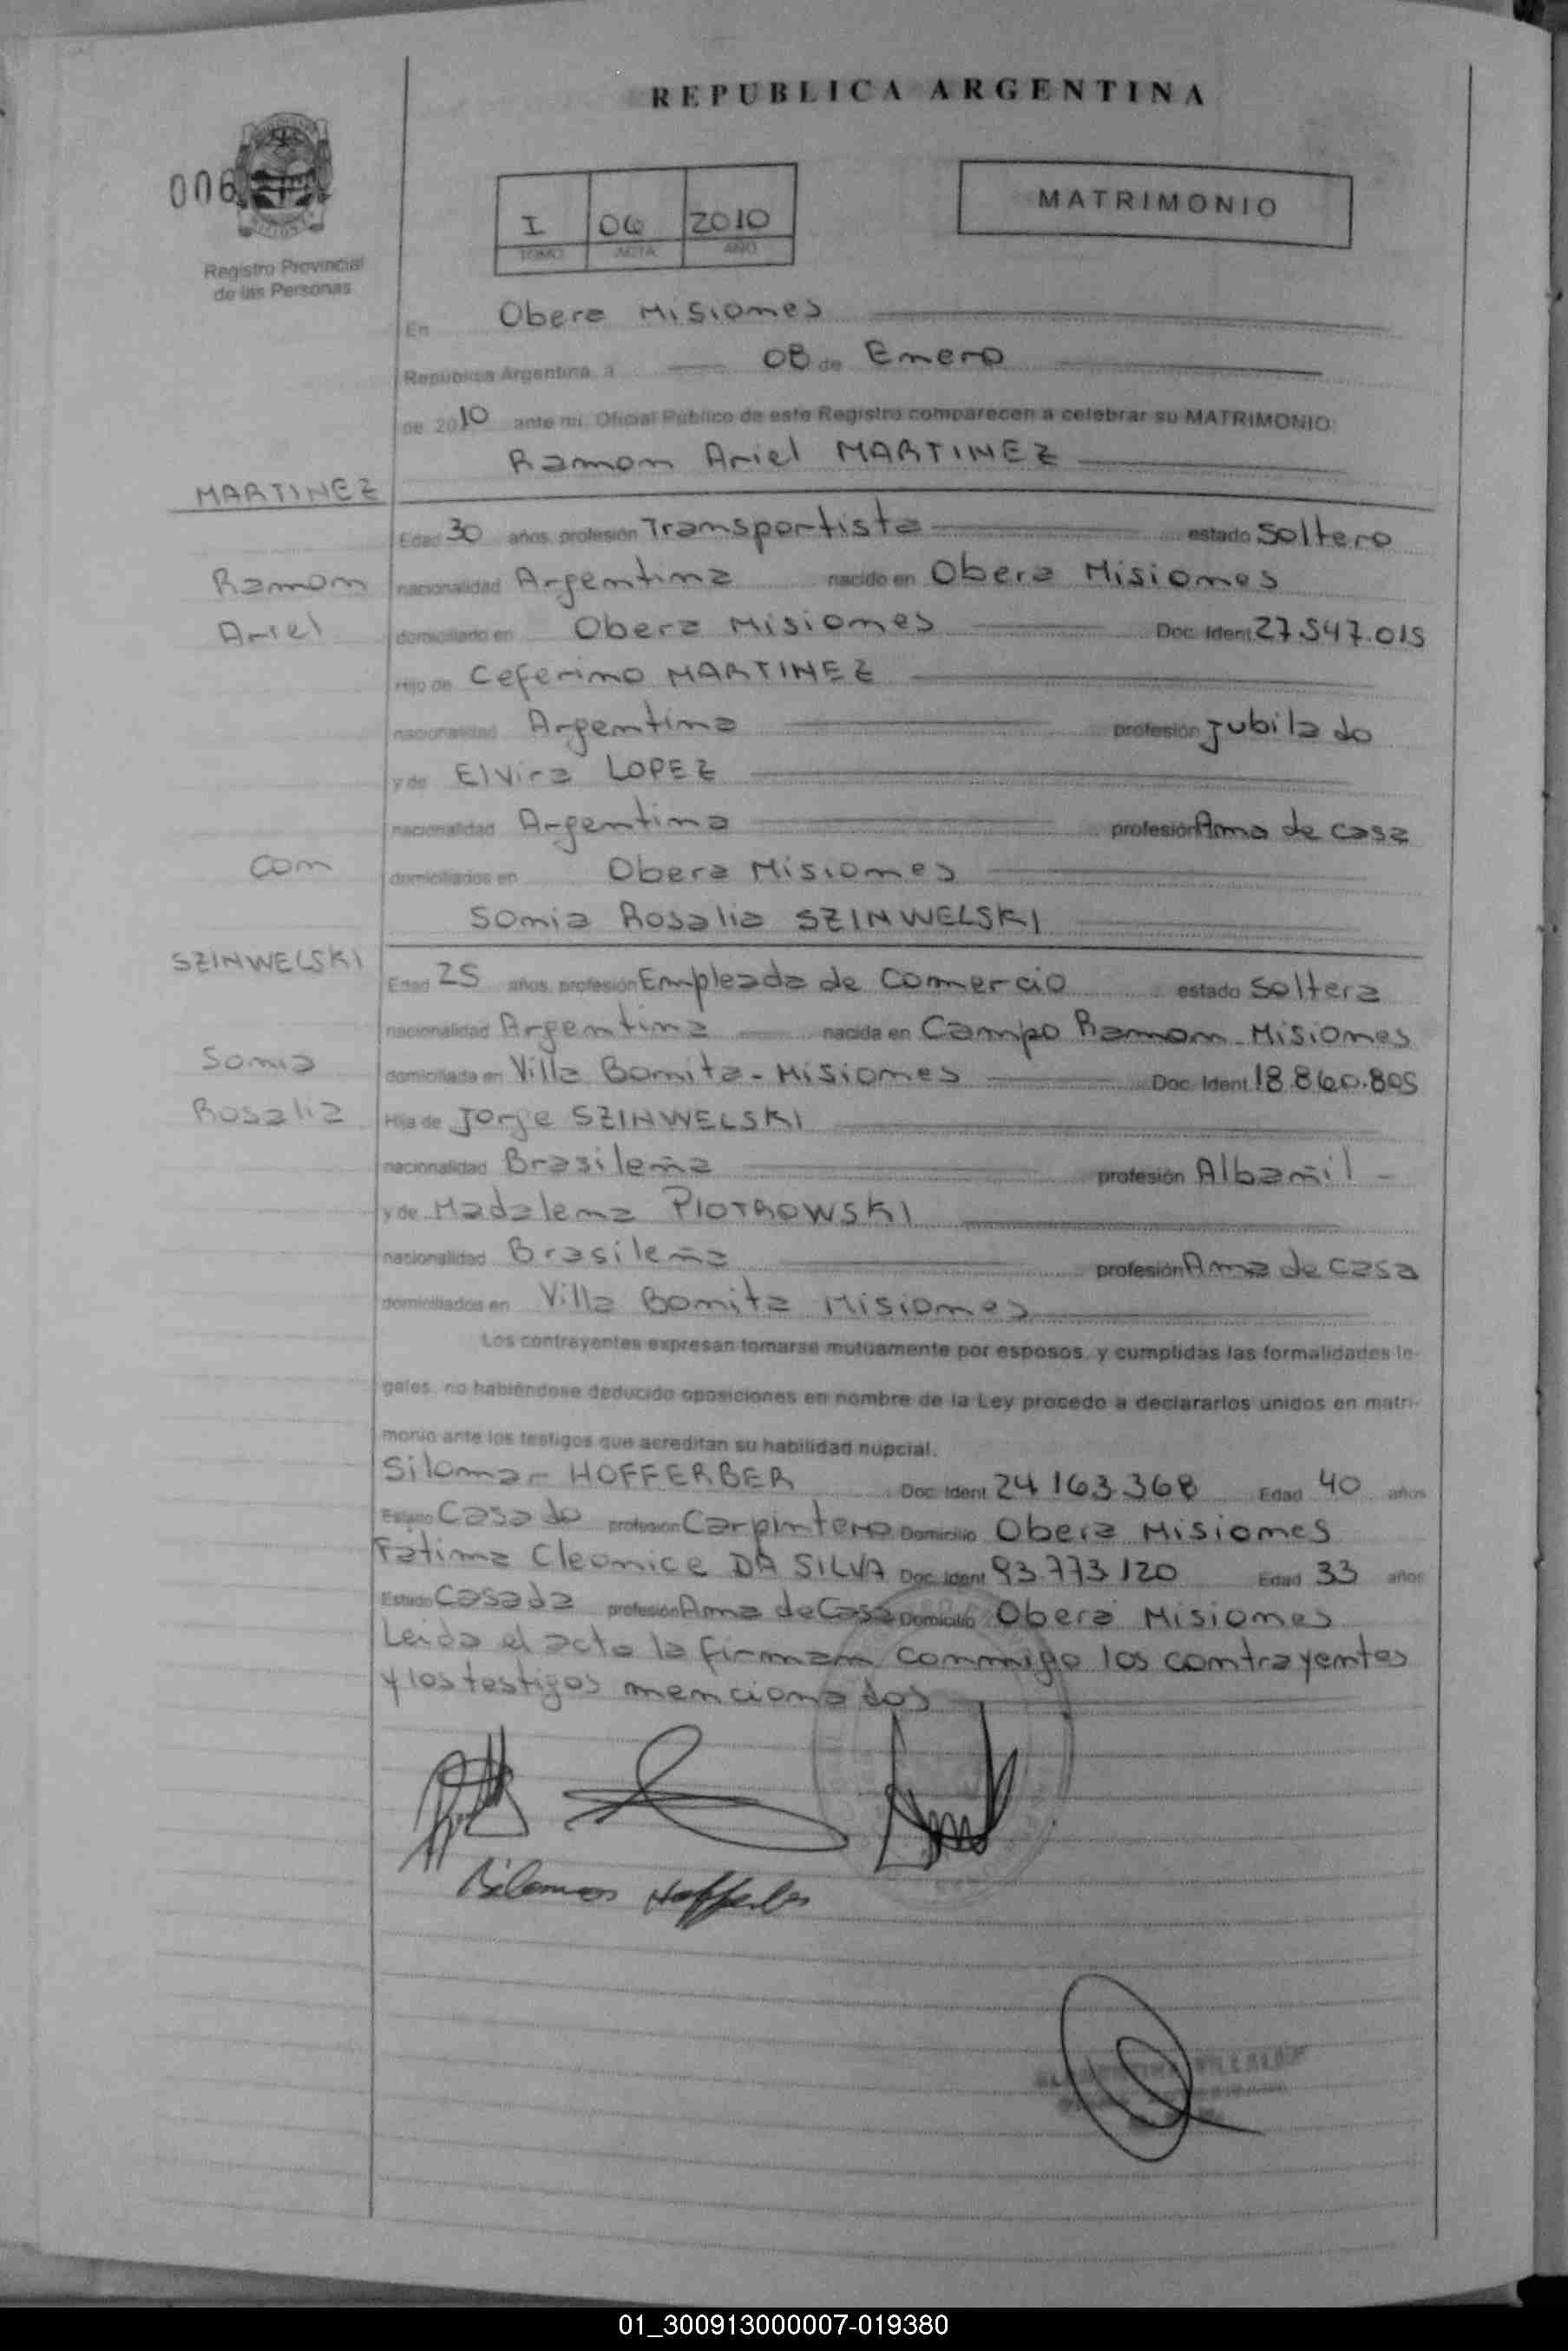 REPUBLICA ARGENTINA
006
I 06 2010
TOMO ACTA AÑO
MATRIMONIO
Registro Provincial
de las Personas
En Obera Misiones
República Argentina, a 08 de Enero
de 2010 ante mi, Oficial Público de este Registro comparecen a celebrar su MATRIMONIO:
Ramon Ariel MARTINEZ
MARTINEZ
Edad 30 años, profesión Transportista estado Soltero
Ramon
nacionalidad Argentina nacido en Obera Misiones
Ariel
domiciliado en Obera Misiones Doc. Ident. 27.547.015
Hijo de Ceferino MARTINEZ
nacionalidad Argentina profesión Jubilado
y de Elvira LOPEZ
nacionalidad Argentina profesión Ama de casa
Con
domiciliados en Obera Misiones
Sonia Rosalia SZINWELSKI
SZINWELSKI
Edad 25 años, profesión Empleada de Comercio estado Soltera
nacionalidad Argentina nacida en Campo Ramon - Misiones
Sonia
domiciliada en Villa Bonita - Misiones Doc. Ident. 18.860.805
Rosalia
Hija de Jorge SZINWELSKI
nacionalidad Brasileña profesión Albañil -
y de Madalena PIOTROWSKI
nacionalidad Brasileña profesión Ama de Casa
domiciliados en Villa Bonita Misiones
Los contrayentes expresan tomarse mutuamente por esposos, y cumplidas las formalidades le-
gales, no habiéndose deducido oposiciones en nombre de la Ley procedo a declararlos unidos en matri-
monio ante los testigos que acreditan su habilidad nupcial.
Silomar HOFFERBER Doc. Ident. 24.163.368 Edad 40 años
Estado Casado profesión Carpintero Domicilio Obera Misiones
Fatima Cleonice DA SILVA Doc. Ident. 93.773.120 Edad 33 años
Estado Casada profesión Ama de Casa Domicilio Obera Misiones
Leida el acto la firman conmigo los contrayentes
y los testigos mencionados
VILLALBA
01_300913000007-019380